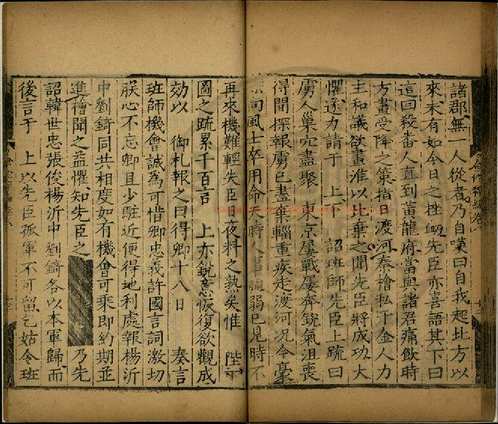 諸郡無一人從者乃自嘆曰自我起北方以
來未有如今日之挫衂先臣亦喜語其下曰
這回殺番人直到黃龍府當與諸君痛飲時
方畫受降之策指日渡河秦檜私于金人力
主和議欲畫淮以北棄之聞先臣將成功大
懼遂力請于 上 詔班師先臣上疏曰
虜人巢穴盡聚 東京屢戰屢奔銳氣沮喪
得間探報虜已盡棄輜重疾走渡河况今豪
向風士卒用命天時人事 弱已見時不
再來機難輕失臣日夜料之熟矣惟 陛下
圖之疏累千百言 上亦銳意恢復欲觀成
効以 御札報之曰得卿十八日 奏言
班師機會誠為可惜卿忠義許國言詞激切
朕心不忘卿且少駐近便得地利處報楊沂
中劉錡同共相度如有機會可乘即約期並
進檜聞之益懼知先臣之 乃先
詔韓世忠張俊楊沂中劉錡各以本軍歸而
後言于 上以先臣孤軍不可留乞姑令班